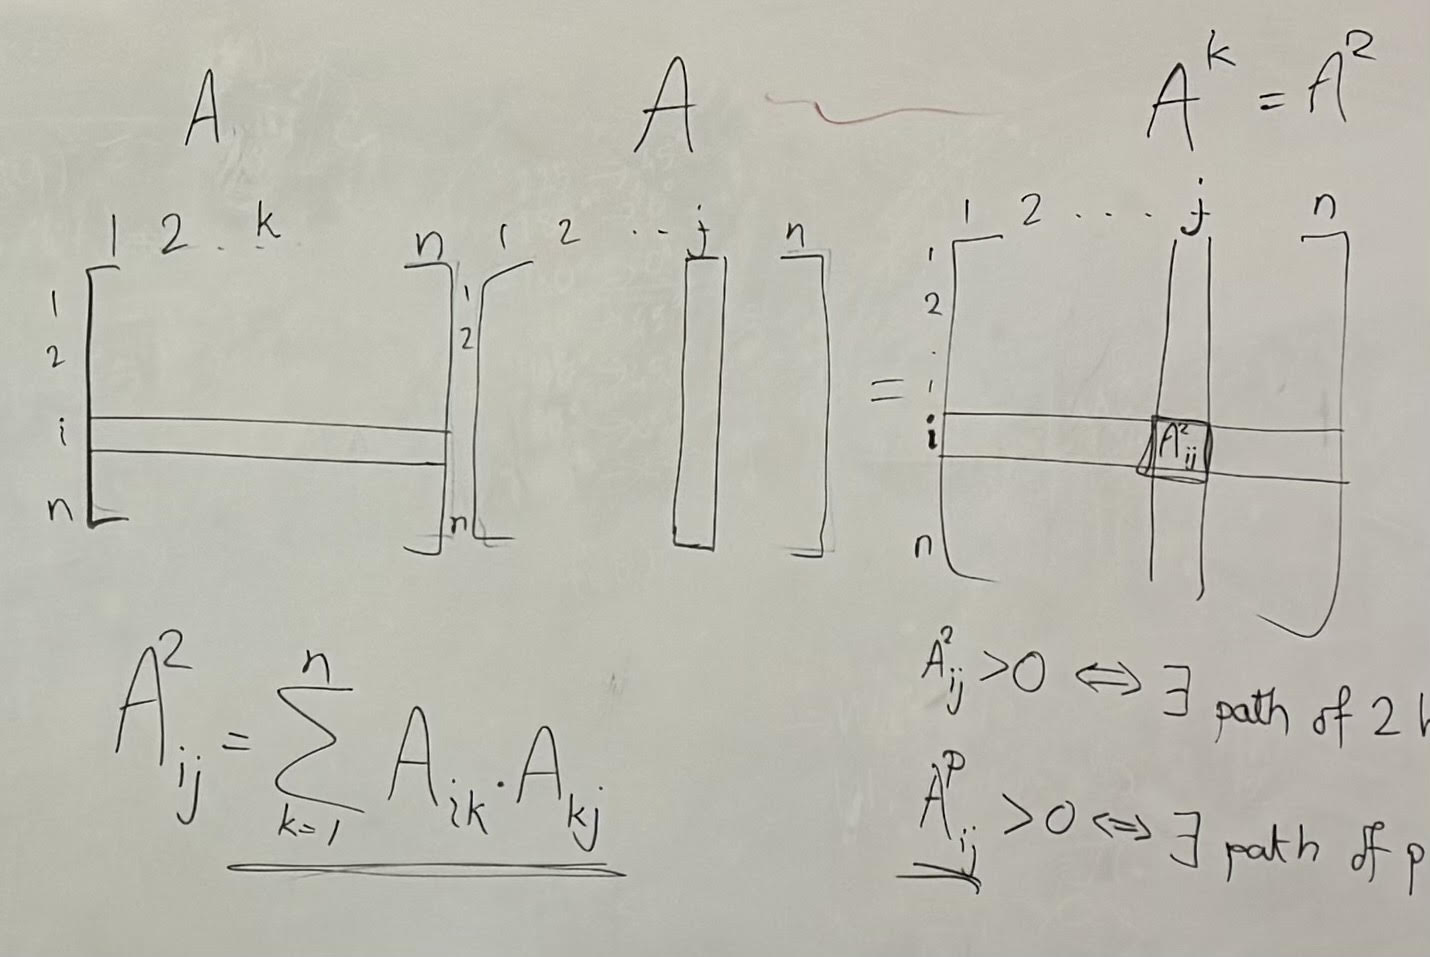 A A A^k = A^2
1 2 . k n 1 2 ... j n 1 2 .... j n
1 1 1
2 2 2
i = i
A^2_ij
n n n
A^2_ij = \sum_{k=1}^{n} A_ik . A_kj
A^2_ij > 0 ⇔ ∃ path of 2
A^p_ij > 0 ⇔ ∃ path of p